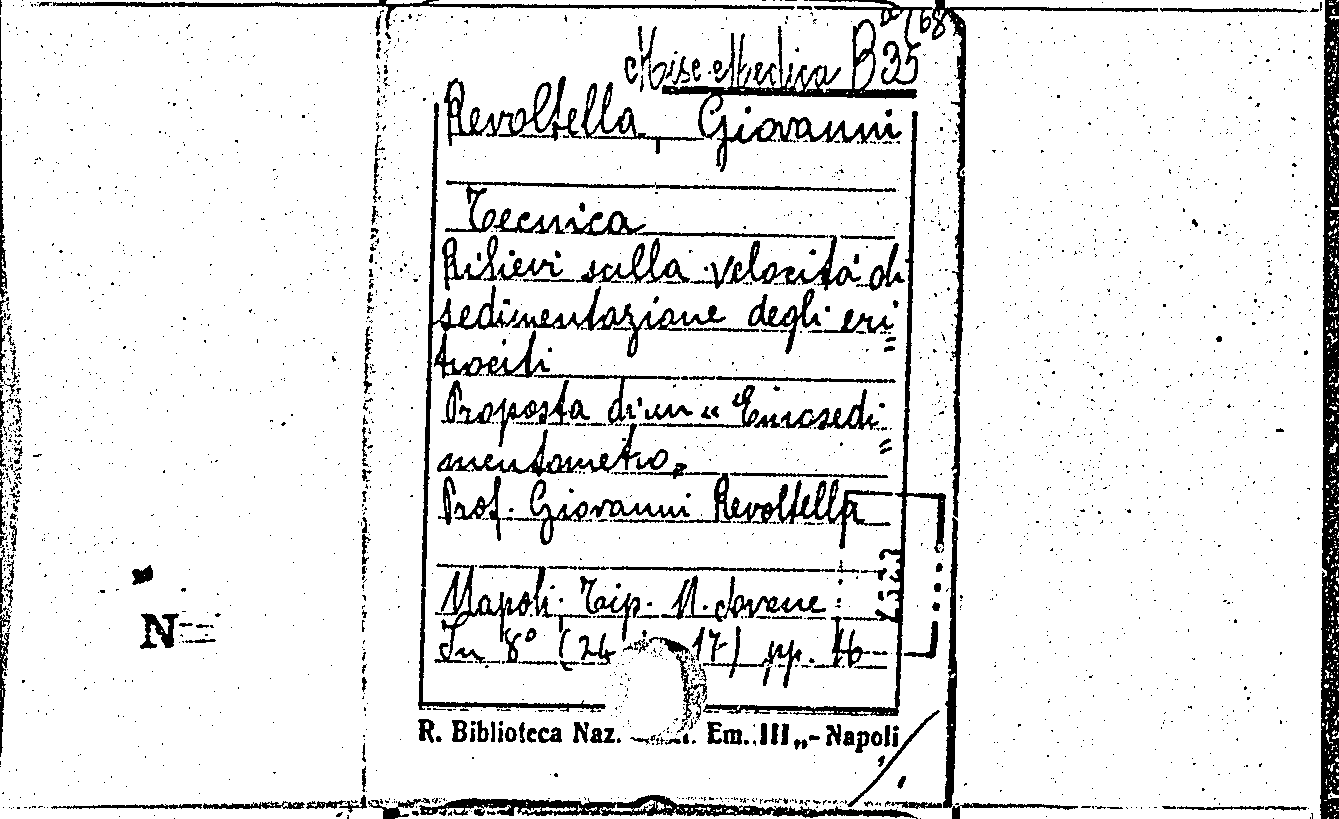 Misc. Medica B 35
Revoltella, Giovanni
Tecnica
Rilievi sulla velocità di
sedimentazione degli eri
trociti
Proposta di un "Emosedi
mentometro„
Prof. Giovanni Revoltella
Napoli. Tip. N. Jovene
In 8° (24 17) pp. 16
R. Biblioteca Naz. Em. III„ - Napoli
N